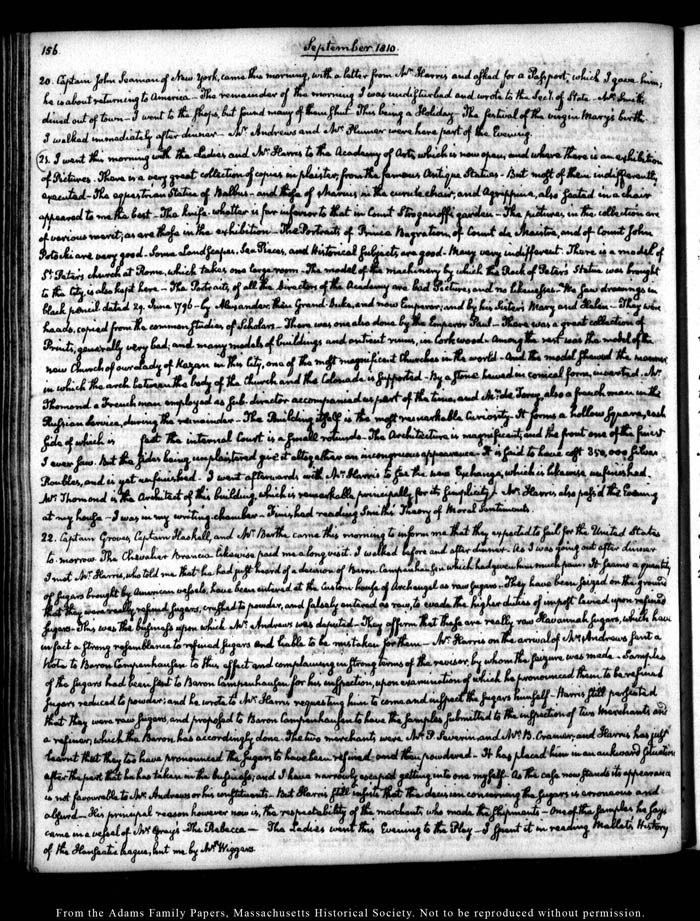 156
September 1810.
20. Captain John Seaman of New York, came this morning, with a letter from Mr. Harris and asked for a Passport, which I gave him;
he is about returning to America — The remainder of the morning I was undisturbed and wrote to the Secy. of State — Mr. Smith
dined out of town — I went to the shops, but found many of them shut. This being a Holiday. The festival of the virgin Mary's birth.
I walked immediately after dinner — Mr. Andrews and Mr. were here part of the Evening.
21. I went this morning with the Ladies and Mr. Harris to the Academy of Arts, which is now open, and where there is an exhibition
of Pictures. There is a very great collection of copies in plaister, from the famous Antique Statues — But most of them indifferently
executed — The equestrian Statue of Balbus — and those of Marcus, in the curule chair, and Agrippina, also seated in a chair
appeared to me the best — The knife-whetter is far inferior to that in Count Stroganoff's garden — The pictures in the collection are
of various merit; as are those in the exhibition — The Portraits of Prince Bagration, of Count de Maistre, and of Count John
Potocki are very good — Some Landscapes, Sea Pieces, and Historical Subjects are good — Many very indifferent. There is a model of
St. Peter's church at Rome, which takes one large room — The model of the machinery by which the Rock of Peter's Statue was brought
to the city, is also kept here — The Portraits, of all the Directors of the Academy are bad Pictures, and no likenesses — We saw drawings in
black pencil dated 29. June 1796 — by Alexander, then Grand-Duke, and now Emperor; and by his Sisters Mary and Helen — They were
heads, copied from the common studies of Scholars — There was one also done by the Emperor Paul — There was a great collection of
Prints, generally very bad; and many models of buildings and antient ruins, in Cork wood — Among the rest was the model of the
new Church of our lady of Kazan in this City, one of the most magnificent Churches in the world — And the model shewed the manner
in which the arch between the body of the Church and the Colonade is supported — By a stone hewed in conical form, inverted. Mr.
Thomond a French man employed as Sub-director accompanied us part of the time, and Mr. de Torcy, also a french man in the
Russian Service, during the remainder — The Building itself is the most remarkable Curiosity. It forms a hollow Square, each
side of which is feet the internal Court is a small rotunda. The Architecture is magnificent; and the front one of the finest
I ever saw. But the sides being unplaistered give it altogether an incongruous appearance. It is said to have cost 350,000 Silver
Roubles, and is yet unfinished. I went afterwards with Mr. Harris to see the new Exchange, which is likewise unfinished.
Mr. Thomond is the Architect of this building, which is remarkable principally for its simplicity. Mr. Harris also pass'd the Evening
at my house — I was in my writing chamber — Finished reading Smith's Theory of Moral Sentiments.
22. Captain Groves, Captain Haskell, and Mr. Borthe came this morning to inform me that they expected to sail for the United States
to-morrow. The Chevalier Brancia likewise paid me a long visit. I walked before and after dinner. As I was going out after dinner
I met Mr. Harris, who told me that he had just heard of a decision of Baron Campenhausen which had given him much pain. It seems a quantity
of sugars brought by American vessels, have been entered at the custom house of Archangel as raw sugars. They have been seized on the ground
that they were really refined sugars, crushed to powder, and falsely entered as raw, to evade the higher duties of impost levied upon refined
Sugars. This was the business upon which Mr. Andrews was deputed — They affirm that these are really raw Havannah sugars, which have
in fact a strong resemblance to refined sugars and liable to be mistaken for them — Mr. Harris on the arrival of Mr. Andrews sent a
Note to Baron Campenhausen to this effect and complaining in strong terms of the revisor, by whom the seizure was made — Samples
of the Sugars had been sent to Baron Campenhausen for his inspection, upon examination of which he pronounced them to be refined
sugars reduced to powder; and he wrote to Mr. Harris requesting him to come and inspect the sugars himself — Harris still persisted
that they were raw sugars, and proposed to Baron Campenhausen to have the samples submitted to the inspection of two Merchants and
a refiner; which the Baron has accordingly done. The two merchants were Mr. P. Severin and Mr. B. Cramer, and Harris has just
learnt that they too have pronounced the Sugars to have been refined and then powdered — It has placed him in an awkward situation
after the part that he has taken in the business; and I have narrowly escaped getting into one myself. As the case now stands its appearance
is not favourable to Mr. Andrews or his constituents. But Harris still insists that the decision concerning the sugars is erroneous and
absurd — His principal reason however now is, the respectability of the merchants who made the shipments — One of the samples he says
came in a vessel of Mr. Gray's The Rebecca — The Ladies went this Evening to the Play — I spent it in reading Mallet's History
of the Hanseatic league, lent me by Mr. Wiggers.
From the Adams Family Papers, Massachusetts Historical Society. Not to be reproduced without permission.